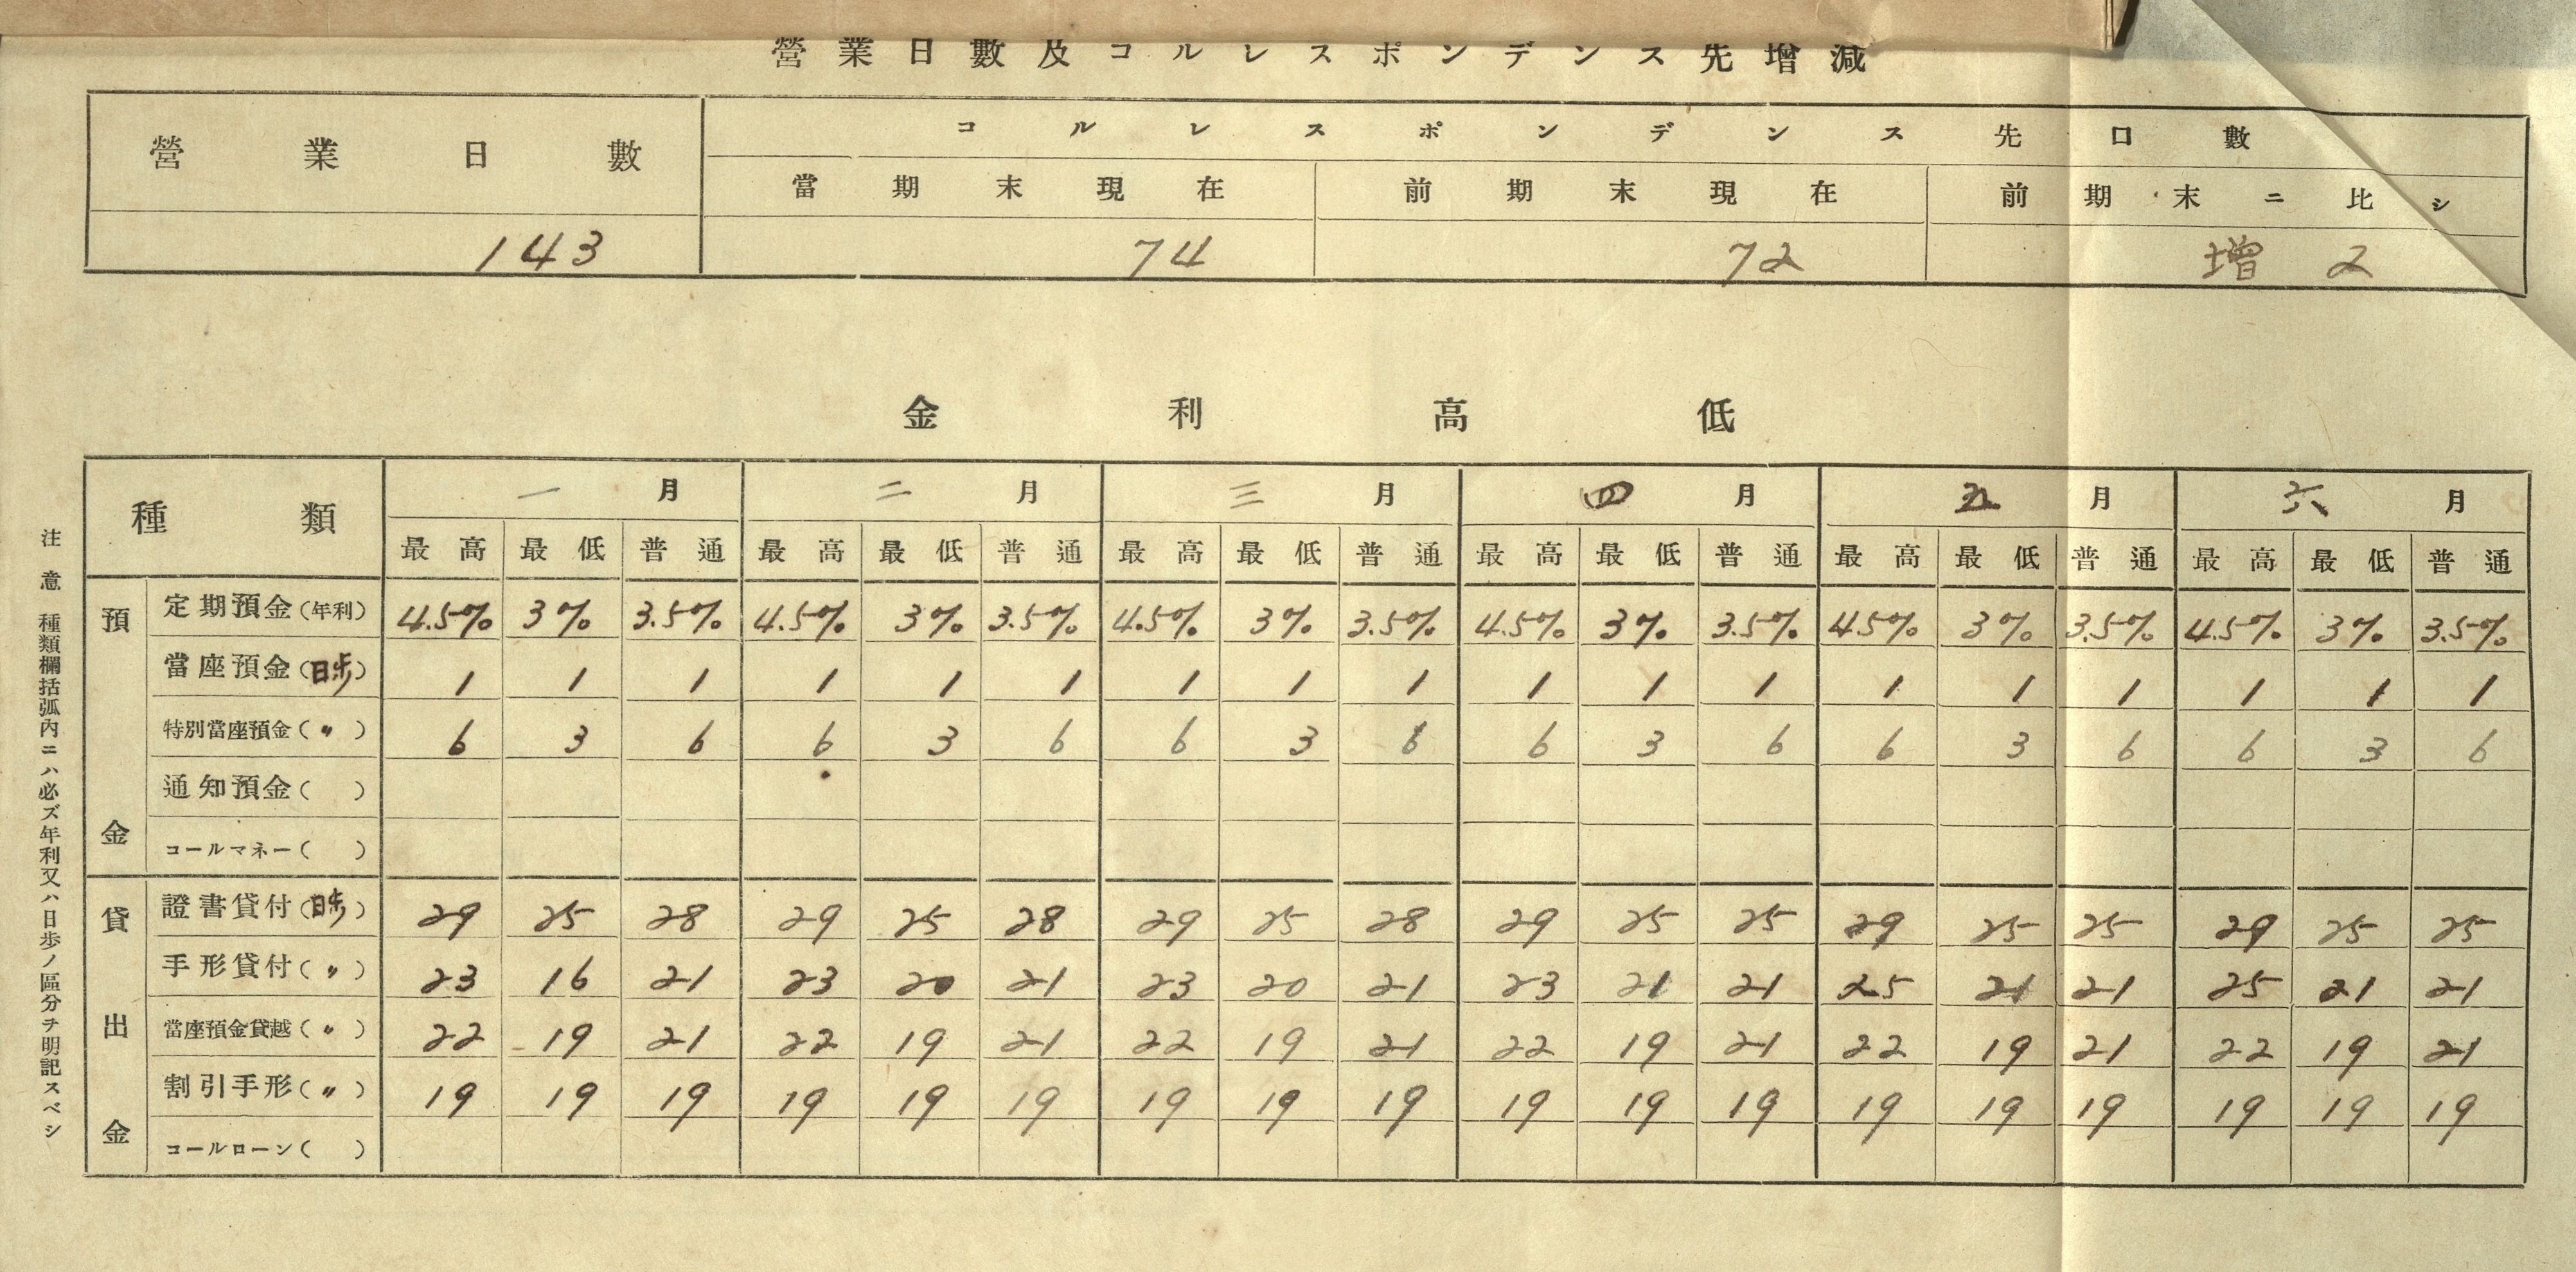 營業日數及コルレスポンデンス先增減
營業日數 コルレスポンデンス先口數
當期末現在 前期末現在 前期末ニ比シ
143 74 72 增 2
金利高低
種類 一月 二月 三月 四月 五月 六月
最高 最低 普通 最高 最低 普通 最高 最低 普通 最高 最低 普通 最高 最低 普通 最高 最低 普通
預金
定期預金(年利) 4.5% 3% 3.5% 4.5% 3% 3.5% 4.5% 3% 3.5% 4.5% 3% 3.5% 4.5% 3% 3.5% 4.5% 3% 3.5%
當座預金(日歩) 1 1 1 1 1 1 1 1 1 1 1 1 1 1 1 1 1 1
特別當座預金(〃) 6 3 6 6 3 6 6 3 6 6 3 6 6 3 6 6 3 6
通知預金( )
コールマネー( )
貸出金
證書貸付(日歩) 29 25 28 29 25 28 29 25 28 29 25 25 29 25 25 29 25 25
手形貸付(〃) 23 16 21 23 20 21 23 20 21 23 21 21 25 21 21 25 21 21
當座預金貸越(〃) 22 19 21 22 19 21 22 19 21 22 19 21 22 19 21 22 19 21
割引手形(〃) 19 19 19 19 19 19 19 19 19 19 19 19 19 19 19 19 19 19
コールローン( )
注意 種類欄括弧內ニハ必ズ年利又ハ日歩ノ區分ヲ明記スベシ